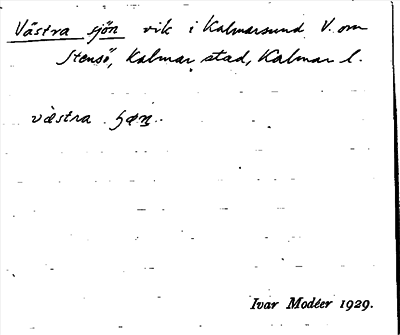 Västra sjön vik i Kalmarsund V. om
Stensö, Kalmar stad, Kalmar l.
västra
Ivar Modéer 1929.